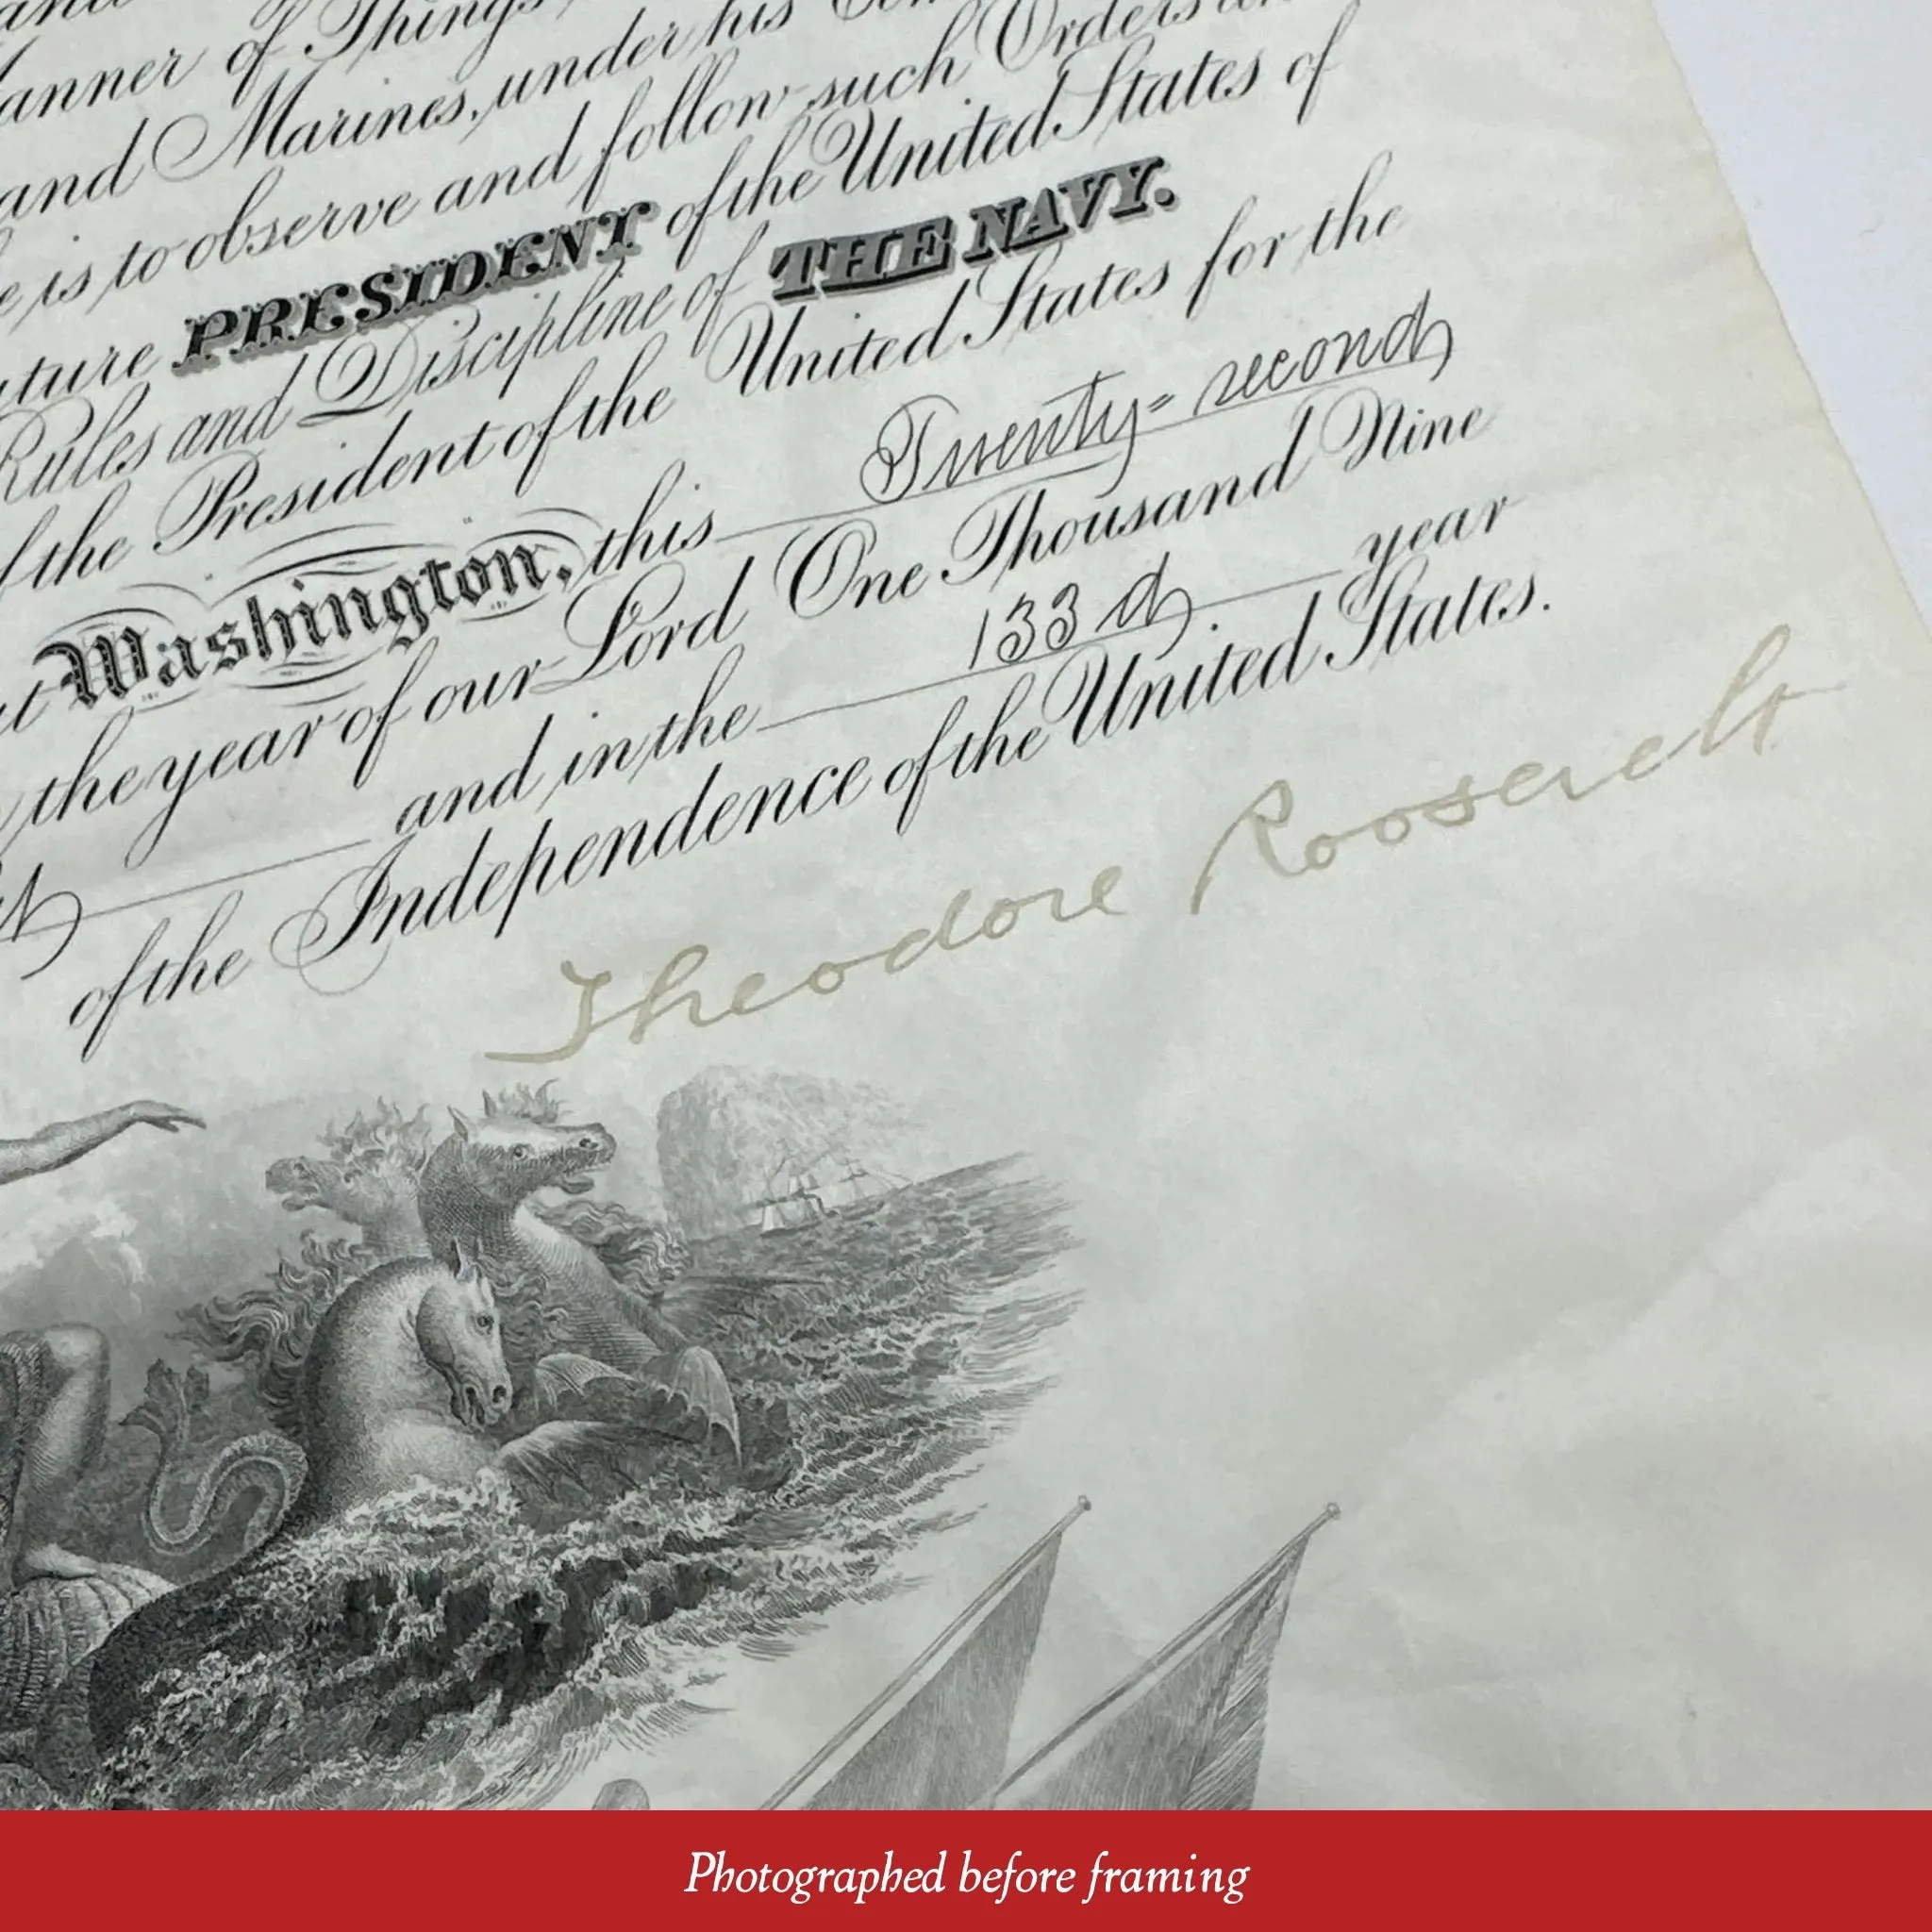 anner of Things
and Marines, under his
is to observe and follow such Orders
PRESIDENT of the United States of
Rules and Discipline of THE NAVY.
the President of the United States for the
Washington, this Twenty=second
the year of our Lord One Thousand Nine
and in the 133d. year
of the Independence of the United States.
Theodore Roosevelt
Photographed before framing